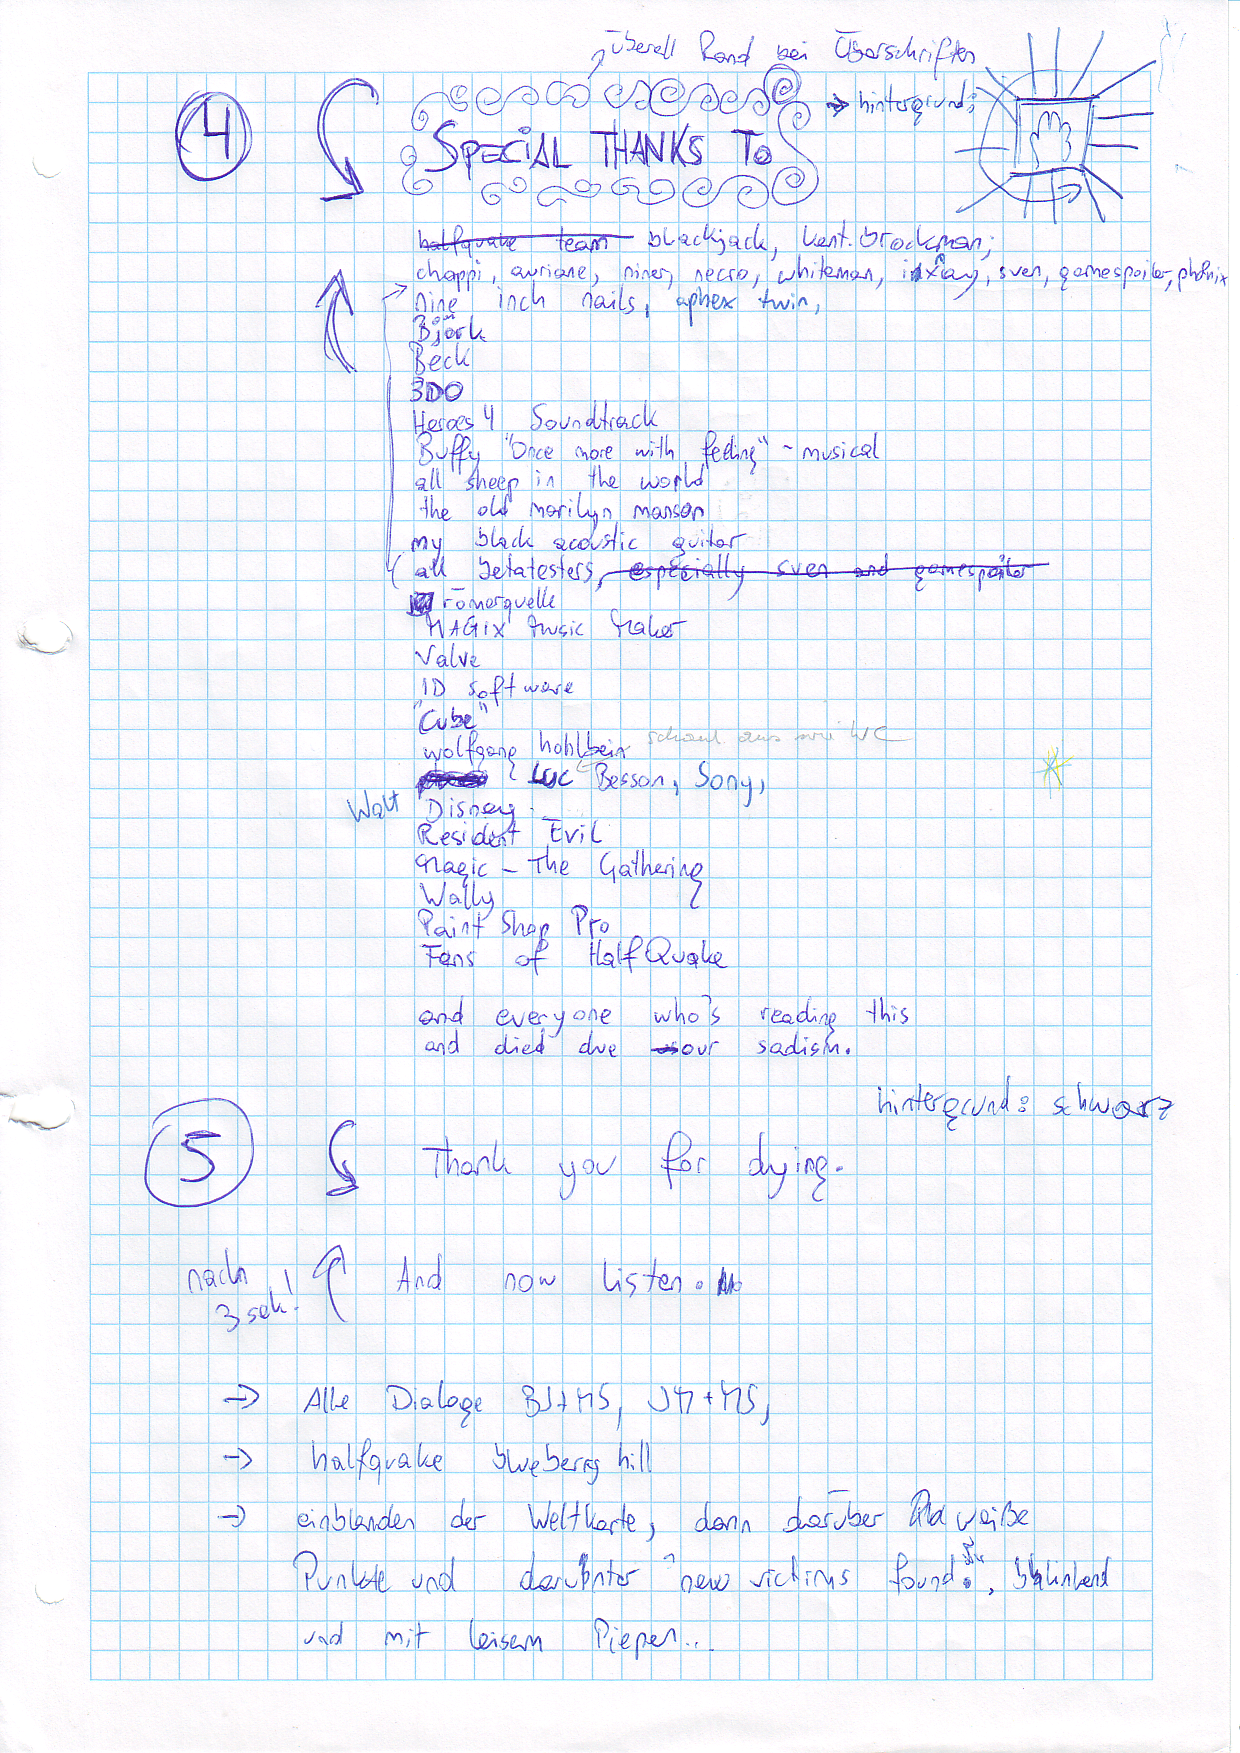 überall Rand bei Überschriften
→ hintergrund:
4
SPECIAL THANKS TO
halfquake team blackjack, kent.brockman,
chappi, auriane, niner, necro, whiteman, sven, gamespoiler, phönix
nine inch nails, aphex twin,
Björk
Beck
3DO
Heroes 4 Soundtrack
Buffy "Once more with feeling" - musical
all sheep in the world
the old marilyn manson
my black acoustic guitar
all betatesters, especially sven and gamespoiler
römerquelle
MAGIX Music Maker
Valve
ID software
"Cube"
wolfgang hohlbein schaut aus wie WC
Luc Besson, Sony,
Walt Disney
Resident Evil
Magic - The Gathering
Wally
Paint Shop Pro
Fans of HalfQuake
and everyone who's reading this
and died due our sadism.
hintergrund: schwarz
5
Thank you for dying.
nach
3 sek!
And now listen.
→ Alle Dialoge BJ+MS, JM+MS,
→ halfquake blueberry hill
→ einblenden der Weltkarte, dann darüber weiße
Punkte und darunter "new victims found:", blinkend
und mit leisem Piepen...